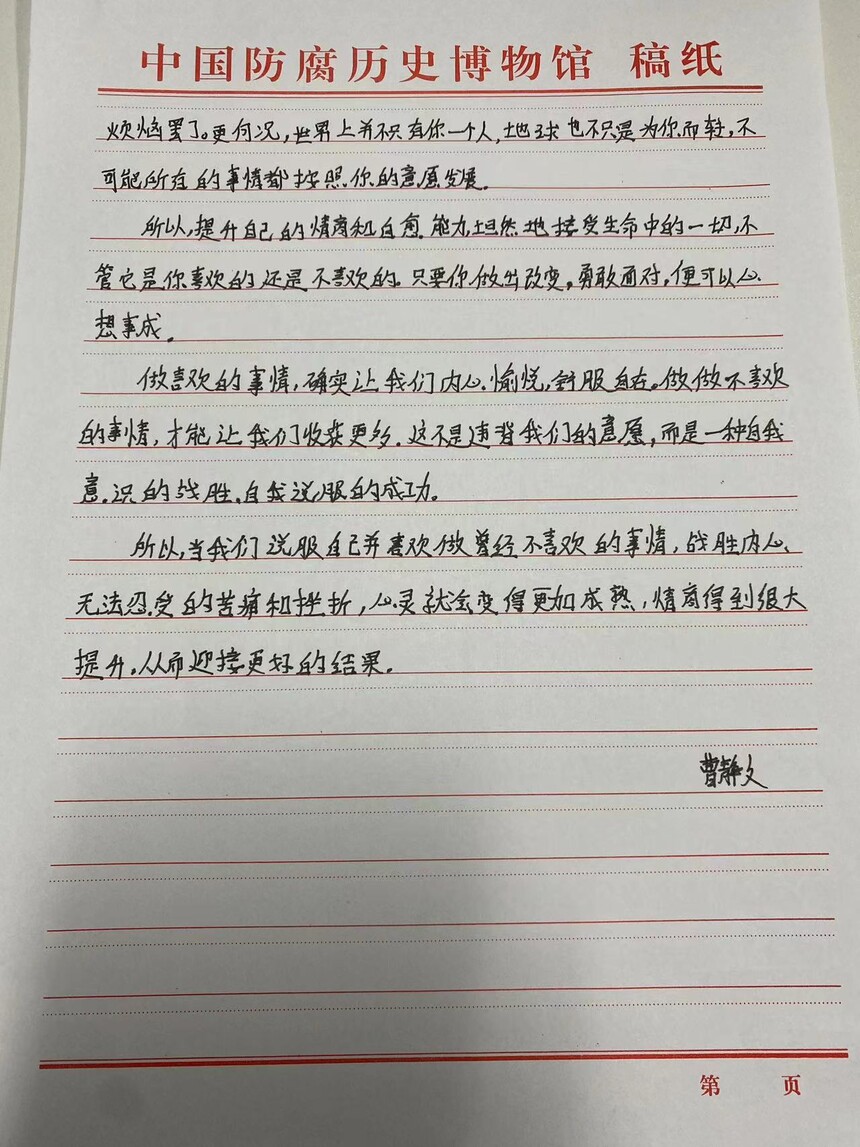 中国防腐历史博物馆 稿纸
烦恼罢了。更何况，世界上并不只有你一个人，地球也不只是为你而转，不
可能所有的事情都按照你的意愿发展。
所以，提升自己的情商和自愈能力，坦然地接受生命中的一切，不
管它是你喜欢的还是不喜欢的。只要你做出改变，勇敢面对，便可以心
想事成。
做喜欢的事情，确实让我们内心愉悦，舒服自在。做做不喜欢
的事情，才能让我们收获更多。这不是违背我们的意愿，而是一种自我
意识的战胜，自我说服的成功。
所以，当我们说服自己并喜欢做曾经不喜欢的事情，战胜内心、
无法忍受的苦痛和挫折，心灵就会变得更加成熟，情商得到很大
提升，从而迎接更好的结果。
曹静文
第 页